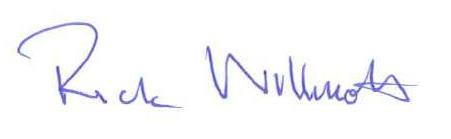 Rick Willmott